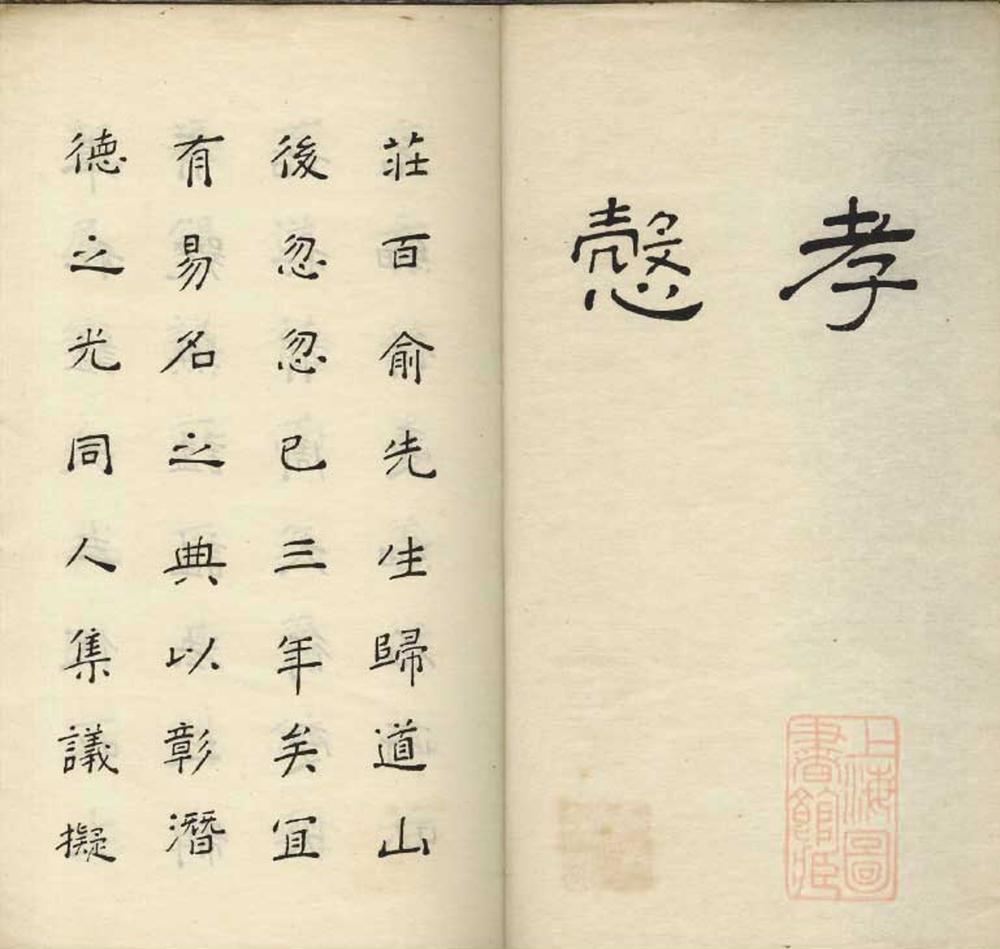 孝慤
上海圖
書館藏
莊百俞先生歸道山
後忽忽已三年矣宜
有易名之典以彰潛
德之光同人集議擬